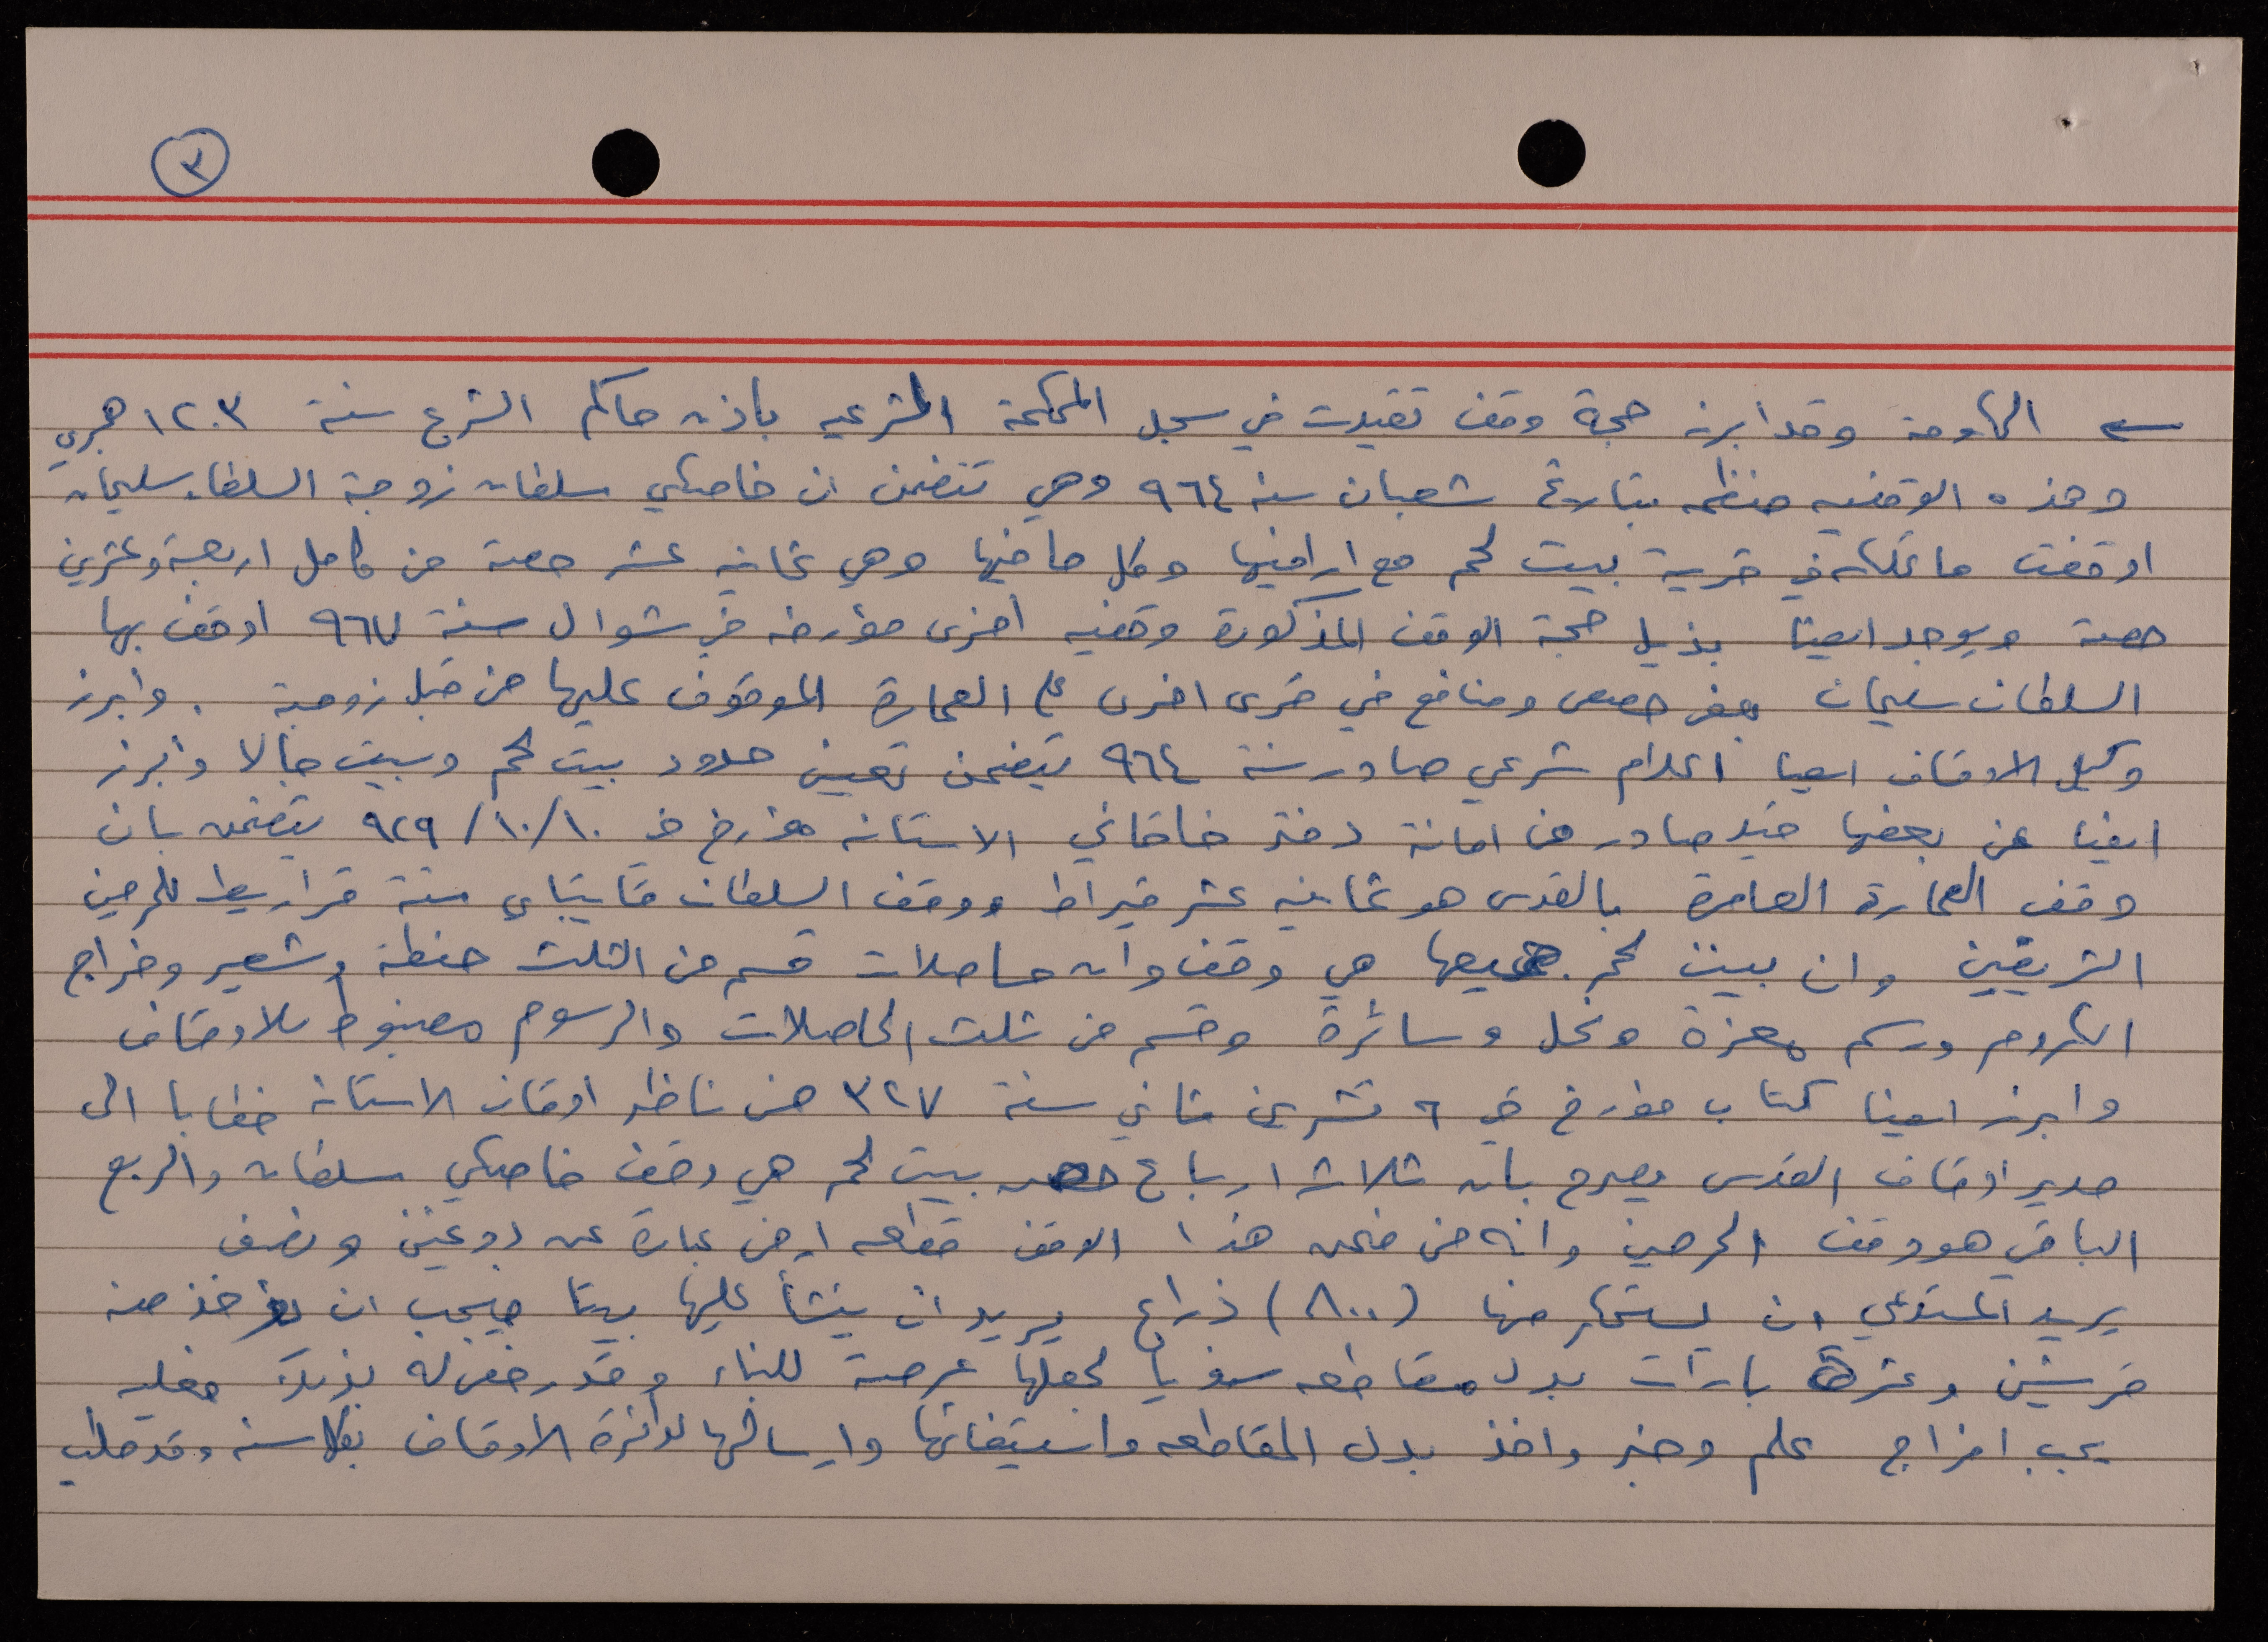 ٣
الحكومة وقد ابرز حجة وقف تقيدت في سجل المحكمة الشرعيه باذن حاكم الشرع سنة ١٢٠٣ هجري
وهذه الوقفيه منظمه بتاريخ شعبان سنه ٩٦٤ وهي تتضمن ان خاصكي سلطان زوجة السلطان سليمان
اوقفت ما تملكه في قرية بيت لحم مع اراضيها وكل ما فيها وهي ثمانيه عشر حصة من كامل اربعة وعشرين
حصة ويوجد ايضا بذيل حجة الوقف المذكورة وقفيه اخرى مؤرخه في شوال سنة ٩٦٧ اوقف بها
السلطان سليمان بعض حصص ومنافع في قرى اخرى على العمارة الموقوف عليها من قبل زوجته . وابرز
وكيل الاوقاف ايضا اعلام شرعي صادر سنة ٩٦٤ يتضمن تعيين حدود بيت لحم وبيت جالا وابرز
ايضا عن بعضها قيد صادر من امانة دفتر خاقاني الاستانه مؤرخ في ١٠/١٠/٩٢٩ يتضمن بان
وقف العمارة العامرة بالقدس هو ثمانيه عشر قيراط ووقف السلطان قايتباي ستة قراريط للحرمين
الشريفين وان بيت لحم جميعها هي وقف وان حاصلات قسم من الثلث حنطة وشعير وخراج
الكروم ورسم معزة ونحل وسائرة وقسم من ثلث الحاصلات والرسوم مضبوط للاوقاف
وابرز ايضا كتاب مؤرخ في ٦ تشرين ثاني سنة ٣٢٧ من ناظر اوقاف الاستانه خطابا الى
مدير اوقاف القدس يصرح بان ثلاثة ارباع بيت لحم هي وقف خاصكي سلطان والربع
الباقي هو وقف الحرمين وانه من ضمن هذا الوقف قطعه ارض عبارة عن دونمين ونصف
يريد المستدعي ان يستحكر منها (٨٠٠) ذراع يريد ان ينشأ عليها بيتا فيجب ان يؤخذ منه
قرشين وعشرة بارات بدل مقاطعه سنويا لجعلها عرصة للبناء وقد رخص له بذلك فعليه
يجب اخراج علم وخبر واخذ بدل المقاطعه واستيفائها وارسالها لدائرة الاوقاف بكل سنه وقد طلب